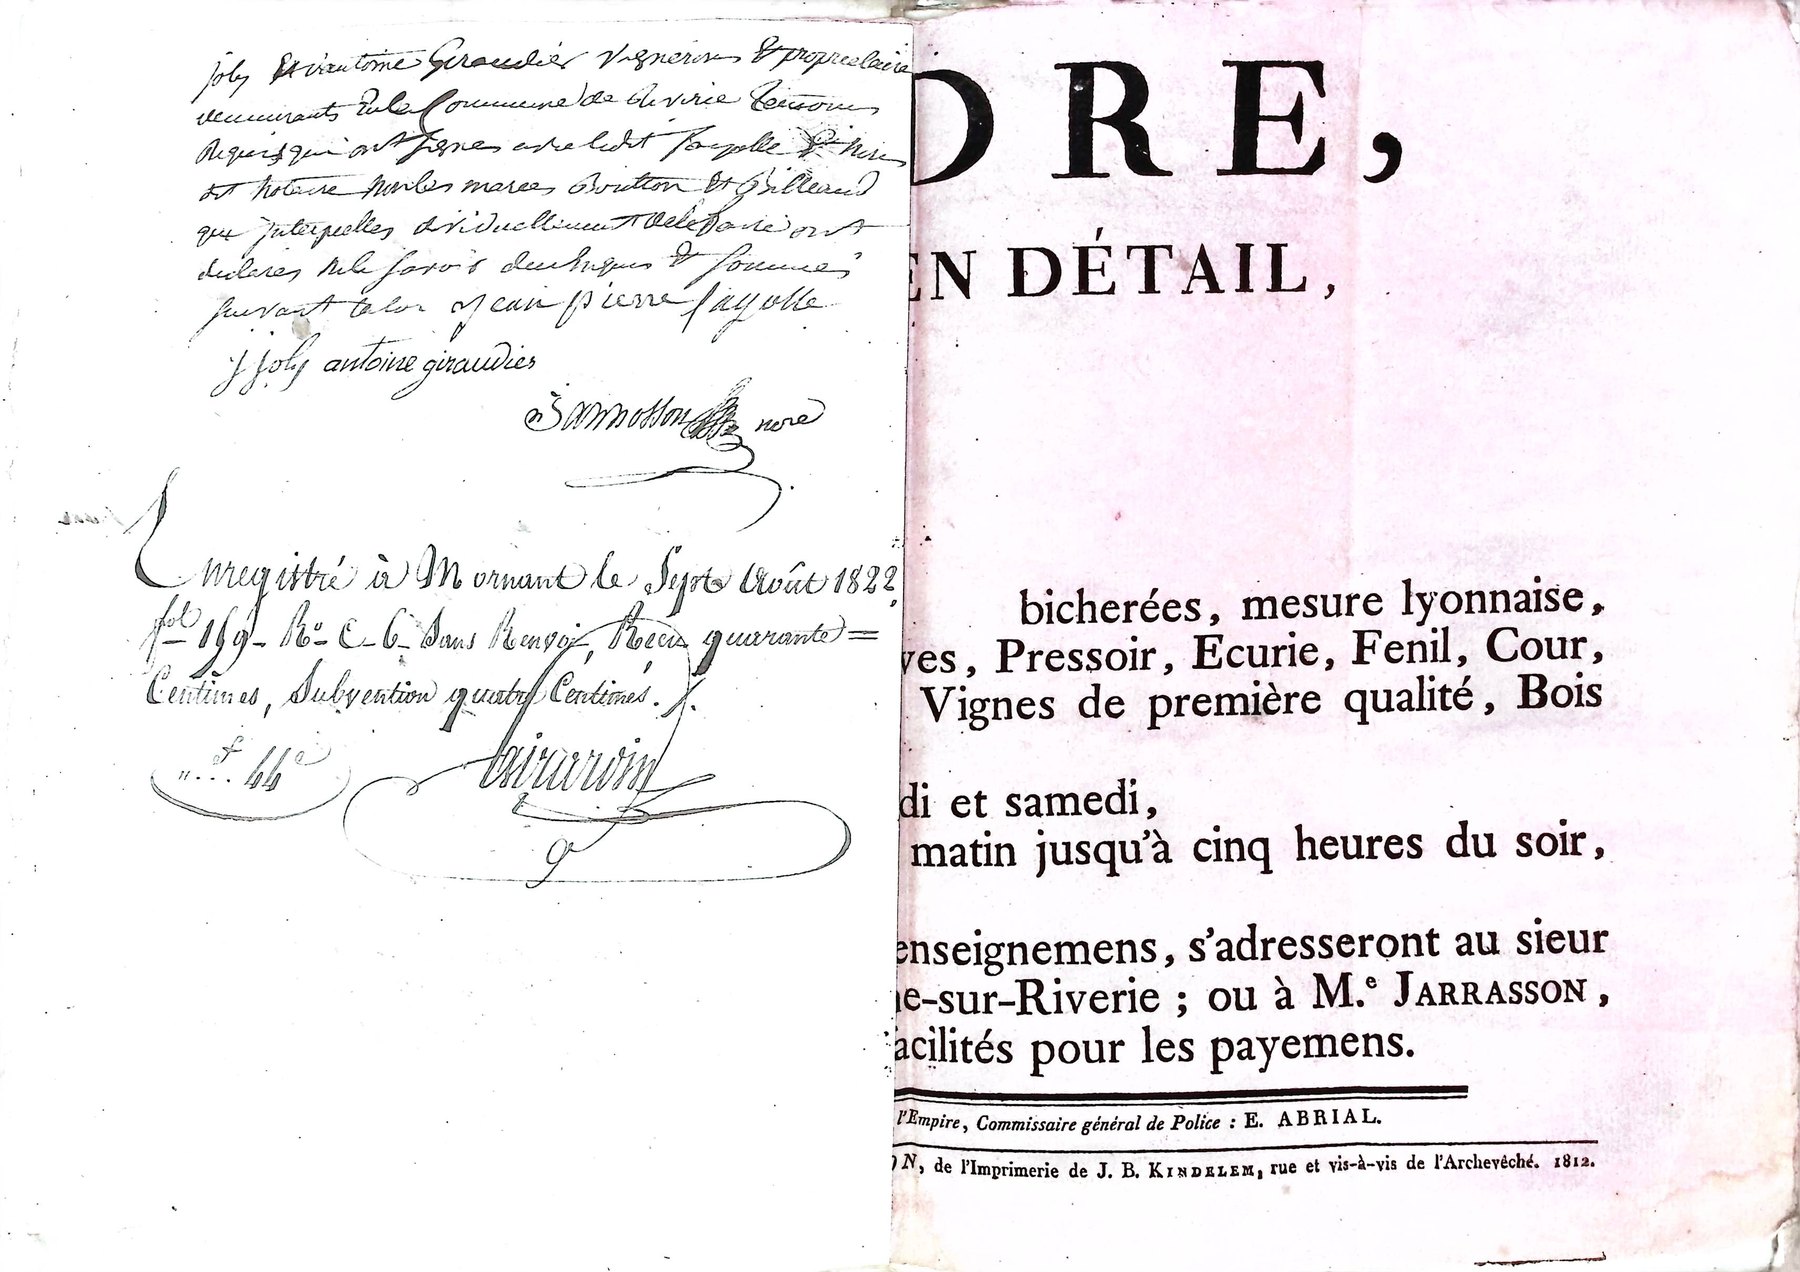 joly et antoine Giraudier vignerons et proprietaire
demeurants en la Commune de Riverie temoins
Requis qui ont signes avec ledit fayolle et nous
dit notaire non les maries Boutton et Billeaud
que interpelles individuellement de le faire ont
declares ne le savoir de ce enquis et sommés
suivant la loi Jean pierre fayolle
J joly antoine giraudier
Jarrosson nore
Enregistré à Mornant le Sept Août 1822,
fol 159 - Ro C. 6 - Sans Renvoi, Reçu quarante =
Centimes, Subvention quatre Centimes.
" f 44 c
Girardin
DRE,
EN DÉTAIL,
bicherées, mesure lyonnaise,
ves, Pressoir, Ecurie, Fenil, Cour,
Vignes de première qualité, Bois
di et samedi,
matin jusqu'à cinq heures du soir,
enseignemens, s'adresseront au sieur
ne-sur-Riverie ; ou à M.e JARRASSON,
acilités pour les payemens.
l'Empire, Commissaire général de Police : E. ABRIAL.
ON, de l'Imprimerie de J. B. KINDELEM, rue et vis-à-vis de l'Archevêché. 1812.